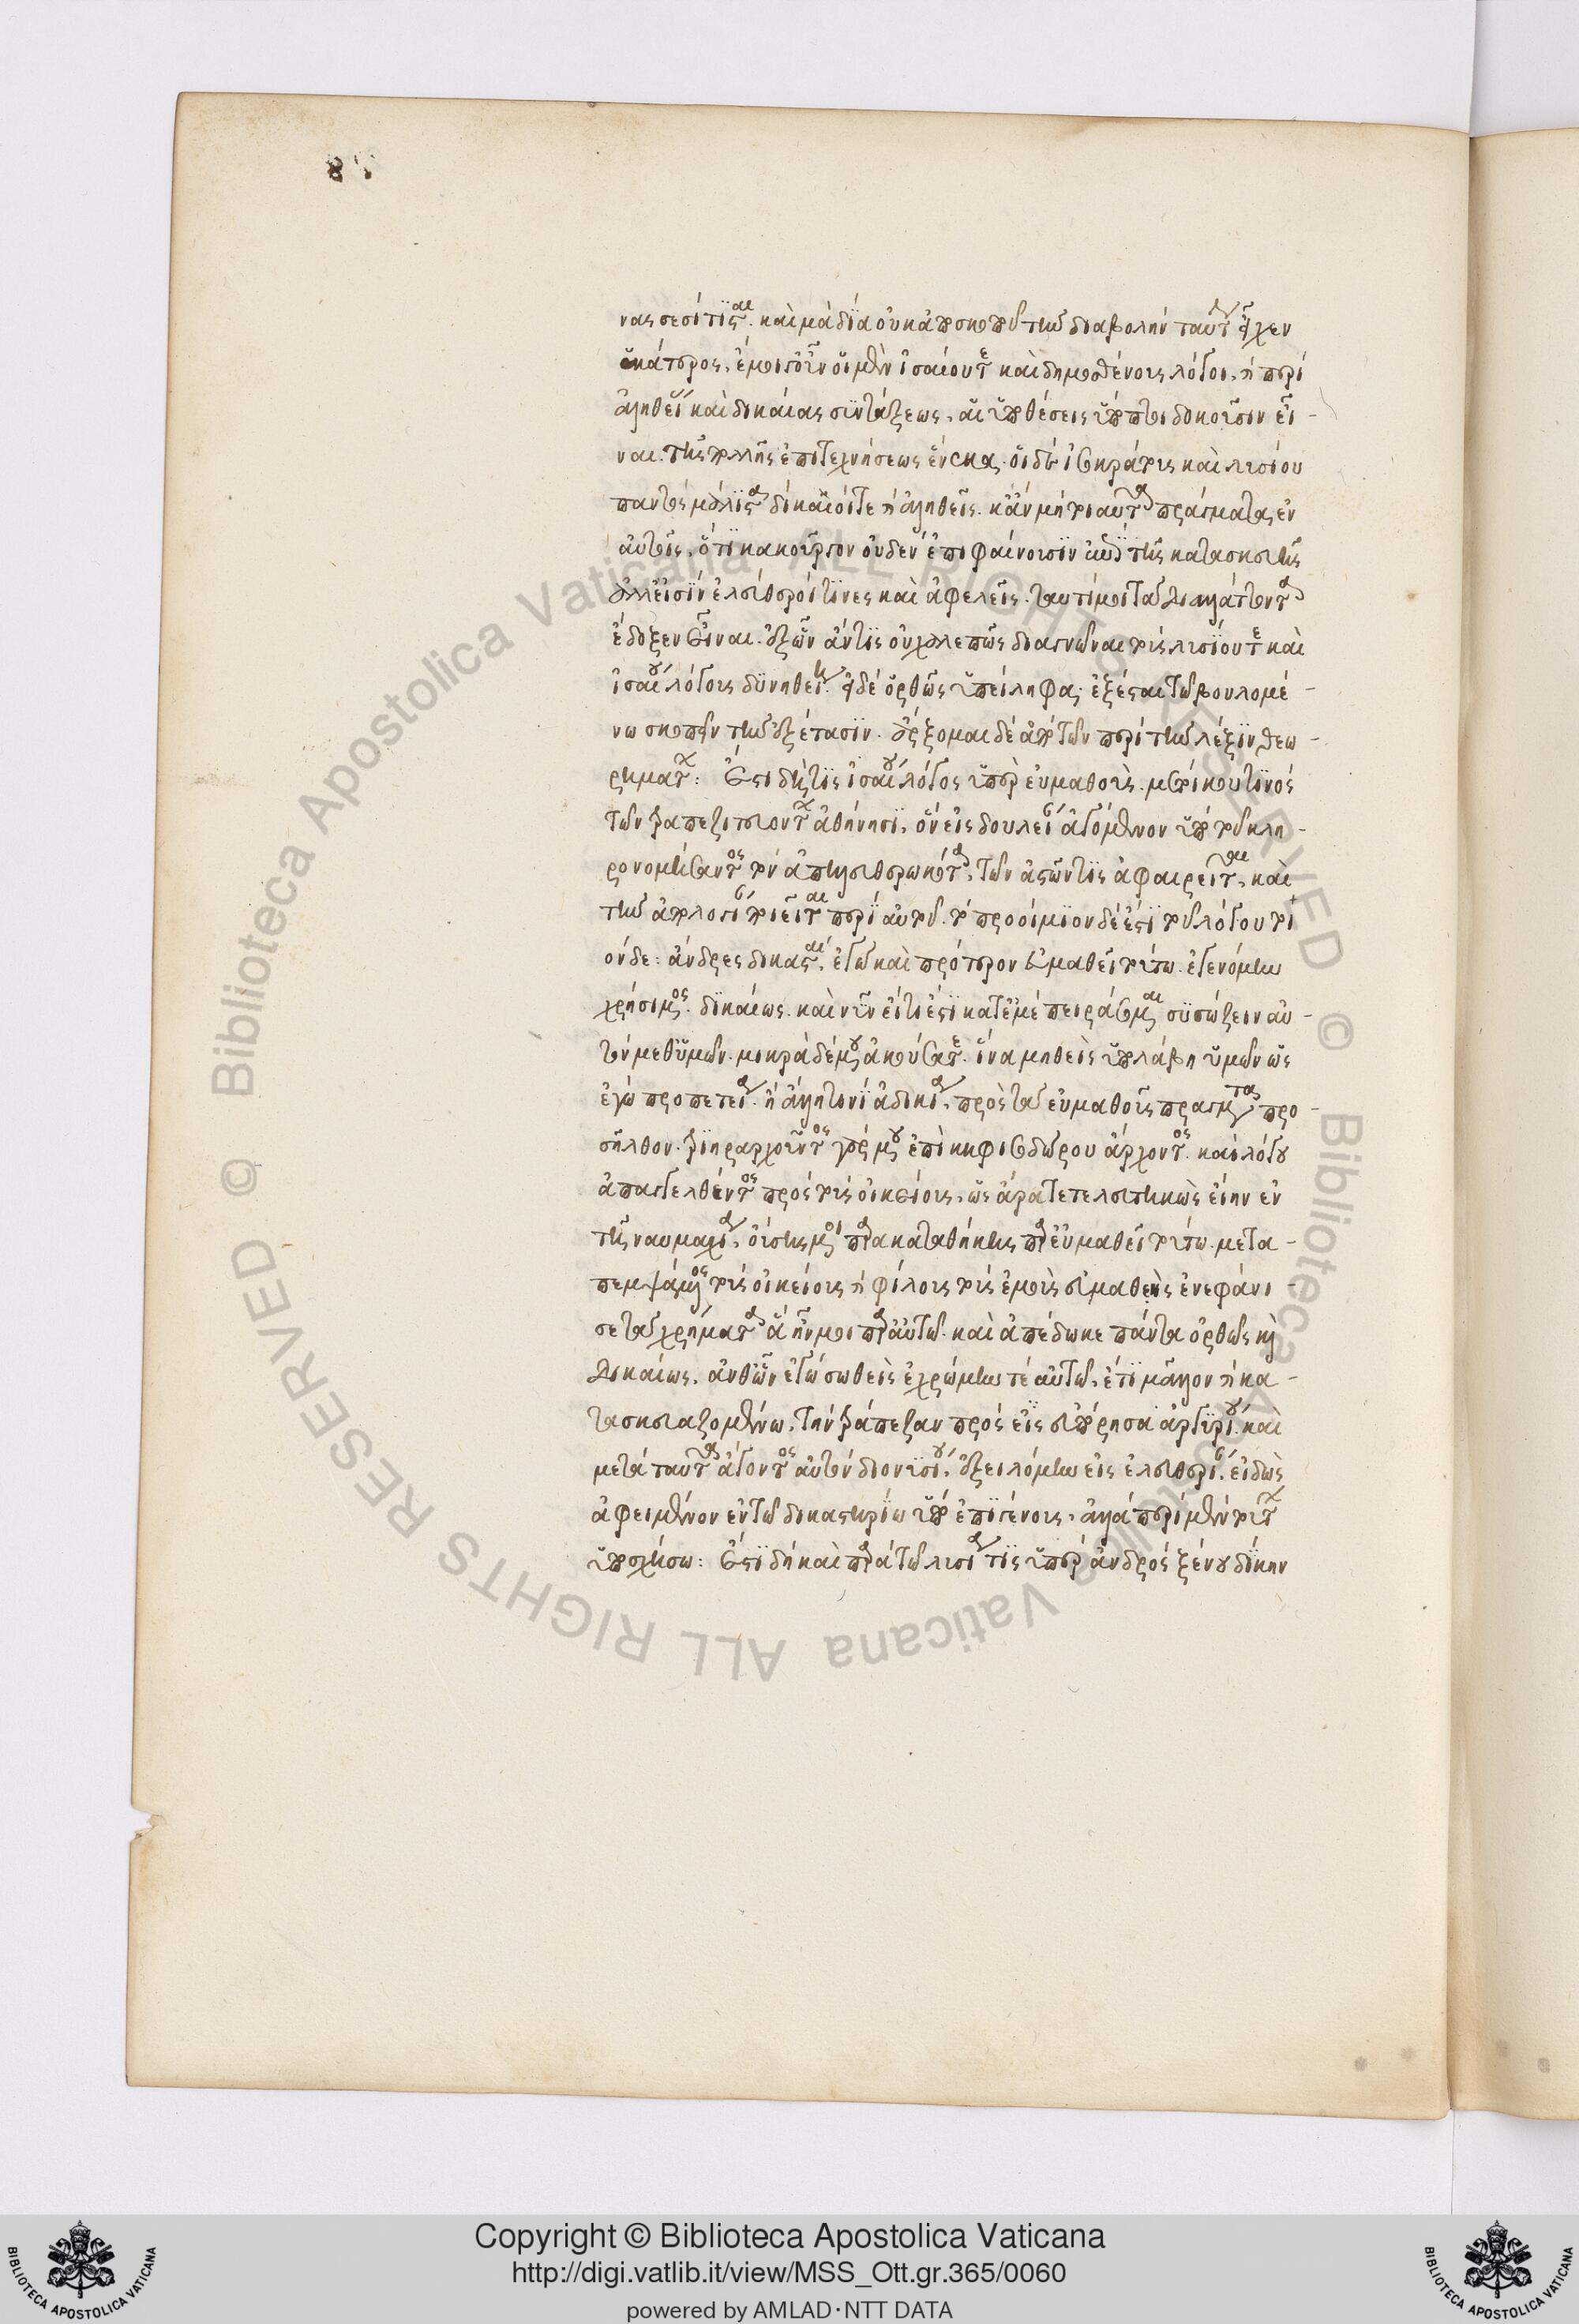 νας σεσόφισται. καὶ μὰ δία οὐκ ἀπο σκοποῦ τὴν διαβολὴν ταύτην εἶχεν
ἑκάτερος. ἐμοὶ γοῦν οἱ μὲν ἰσαίου τε καὶ δημοσθένους λόγοι, κἂν περὶ
ἀληθεῖς καὶ δικαίας συντάξεως, αἱ ὑποθέσεις ὕποπτοι δοκοῦσιν εἶ-
ναι. τῆς πολλῆς ἐπιτεχνήσεως ἕνεκα. οἱ δὲ ἰσοκράτους καὶ λυσίου
παντὸς μάλιστα δίκαιοί τε καὶ ἀληθεῖς. κἂν μὴ τοιαῦτα πράγματα ἐν
αὐτοῖς, ὅτι κακοῦργον οὐδὲν ἐπιφαίνουσιν αἱ τῆς κατασκευῆς
ἀλλ' εἰσὶν ἐλεύθεροί τινες καὶ ἀφελεῖς. ταυτί μοι τὰ διαλάττοντα
ἔδοξεν εἶναι. ἐξ ὧν ἄν τις οὐ χαλεπῶς διαγνῶναι τοὺς λυσίου τε καὶ
ἰσαίου λόγους δυνηθείη. εἰ δὲ ὀρθῶς ὑπείληφα, ἐξέσται τῷ βουλομέ-
νω σκοπεῖν τὴν ἐξέτασιν. ἄρξομαι δὲ ἀπὸ τῶν περὶ τὴν λέξιν θεω-
ρημάτων: Ἔστι δή τις ἰσαίου λόγος ὑπὲρ εὐμαθοὺς. μετοίκου τινός
τῶν τραπεζιτευόντων ἀθήνησι, ὃν εἰς δουλείαν ἀγόμενον ὑπὸ τοῦ κλη-
ρονομήσαντος τὸν ἀπηλευθερωκότα, τῶν ἀστῶν τις ἀφαιρεῖται, καὶ
τὴν ἀπολογίαν ποιεῖται περὶ αὐτοῦ. τὸ προοίμιον δέ ἐστι τοῦ λόγου τοι
όνδε: ἄνδρες δικασταί, ἐγὼ καὶ πρότερον εὐμαθεῖ τούτω. ἐγενόμην
χρήσιμος. δικαίως. καὶ νῦν εἴ τι ἐστι κατ' ἐμὲ πειράσομαι συσώζειν αὐ-
τὸν μεθ' ὑμῶν. μικρὰ δέ μου ἀκούσατε. ἵνα μηθεὶς ὑπολάβη ὑμῶν ὡς
ἐγὼ προπετεία. ἢ ἄλλη τινὶ ἀδικία, πρὸς τὰ εὐμαθοῦς πράγματα προ-
σῆλθον. τριηραρχοῦντος γάρ μου ἐπὶ κηφισοδώρου ἄρχοντος. καὶ λόγου
ἀπαγγελθέντος πρὸς τοὺς οἰκείους. ὡς ἄρα τετελευτηκὼς εἴην ἐν
τῇ ναυμαχία, οὔσης μοι παρακαταθήκης παρ' εὐμαθεῖ τούτω. μετα-
πεμψάμενος τοὺς οἰκείους καὶ φίλους τοὺς ἐμοὺς εὐμαθεὴς ἐνεφάνι-
σε τὰ χρήματα ἃ ἦν μοι παρ' αὐτῶ. καὶ ἀπέδωκε πάντα ὀρθῶς καὶ
δικαίως. ἀνθ' ὧν ἐγὼ σωθεὶς ἐχρώμην τέ αὐτῶ, ἔτι μᾶλλον καὶ κα-
τασκευαζομένω. τὴν τράπεζαν προς εἰς εὐπόρησα ἀργυρίου. καὶ
μετὰ ταῦτα ἄγοντος αὐτὸν διονυσίου, ἐξειλόμην εἰς ἐλευθερίαν. εἰδὼς
ἀφειμένον ἐν τῶ δικαστηρίω ὑπὸ ἐπιγένους. ἀλλὰ περὶ μὲν τούτων
ὑποσχήσω: Ἔστι δὴ καὶ παρὰ τῶ λυσία τις ὑπὲρ ἀνδρὸς ξένου δίκην
Copyright © Biblioteca Apostolica Vaticana
http://digi.vatlib.it/view/MSS_Ott.gr.365/0060
powered by AMLAD·NTT DATA